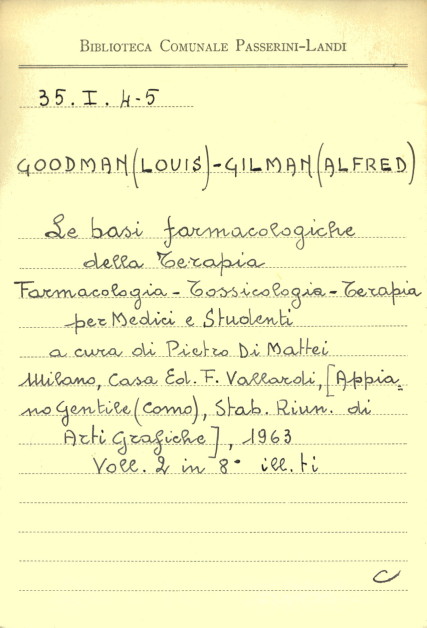 BIBLIOTECA COMUNALE PASSERINI-LANDI
35. I. 4-5
GOODMAN (LOUIS) - GILMAN (ALFRED)
Le basi farmacologiche
della Terapia
Farmacologia - Tossicologia - Terapia
per Medici e Studenti
a cura di Pietro Di Mattei
Milano, Casa Ed. F. Vallardi, [Appia=
no Gentile (Como), Stab. Riun. di
Arti Grafiche], 1963
Voll. 2 in 8° ill. ti
C